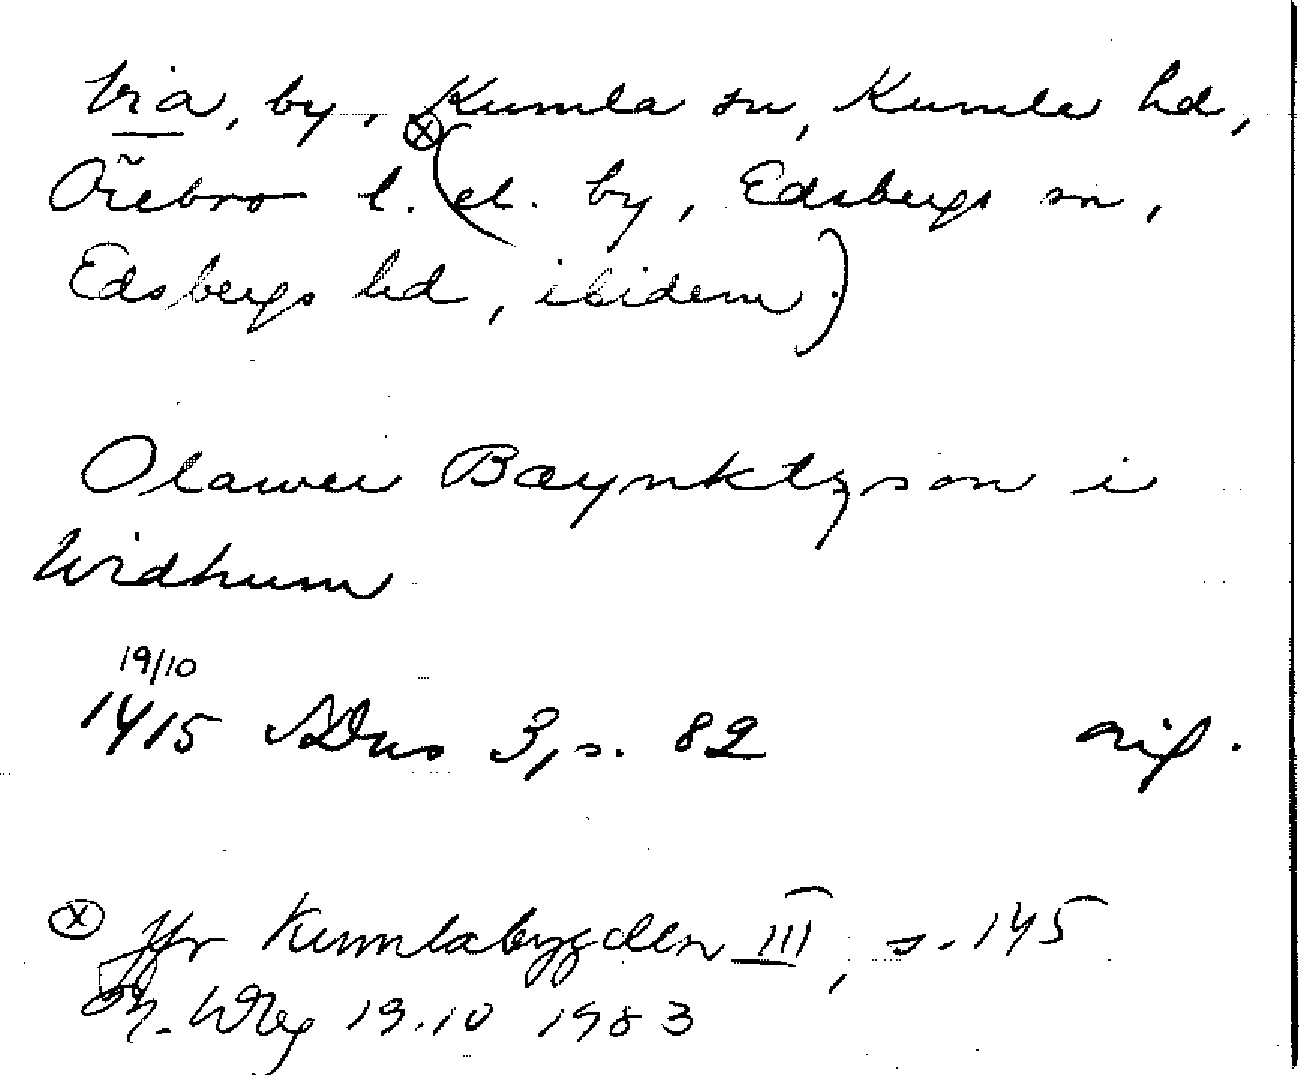 Via, by, Kumla sn, Kumla hd,
Örebro l. ⊗ (el. by, Edsbergs sn,
Edsbergs hd, ibidem.)
Olawer Bæynktzson i
Widhum
19/10
1415 SDns 3, s. 82
⊗ Jfr Kumlabygden III, s. 145
19.10 1983